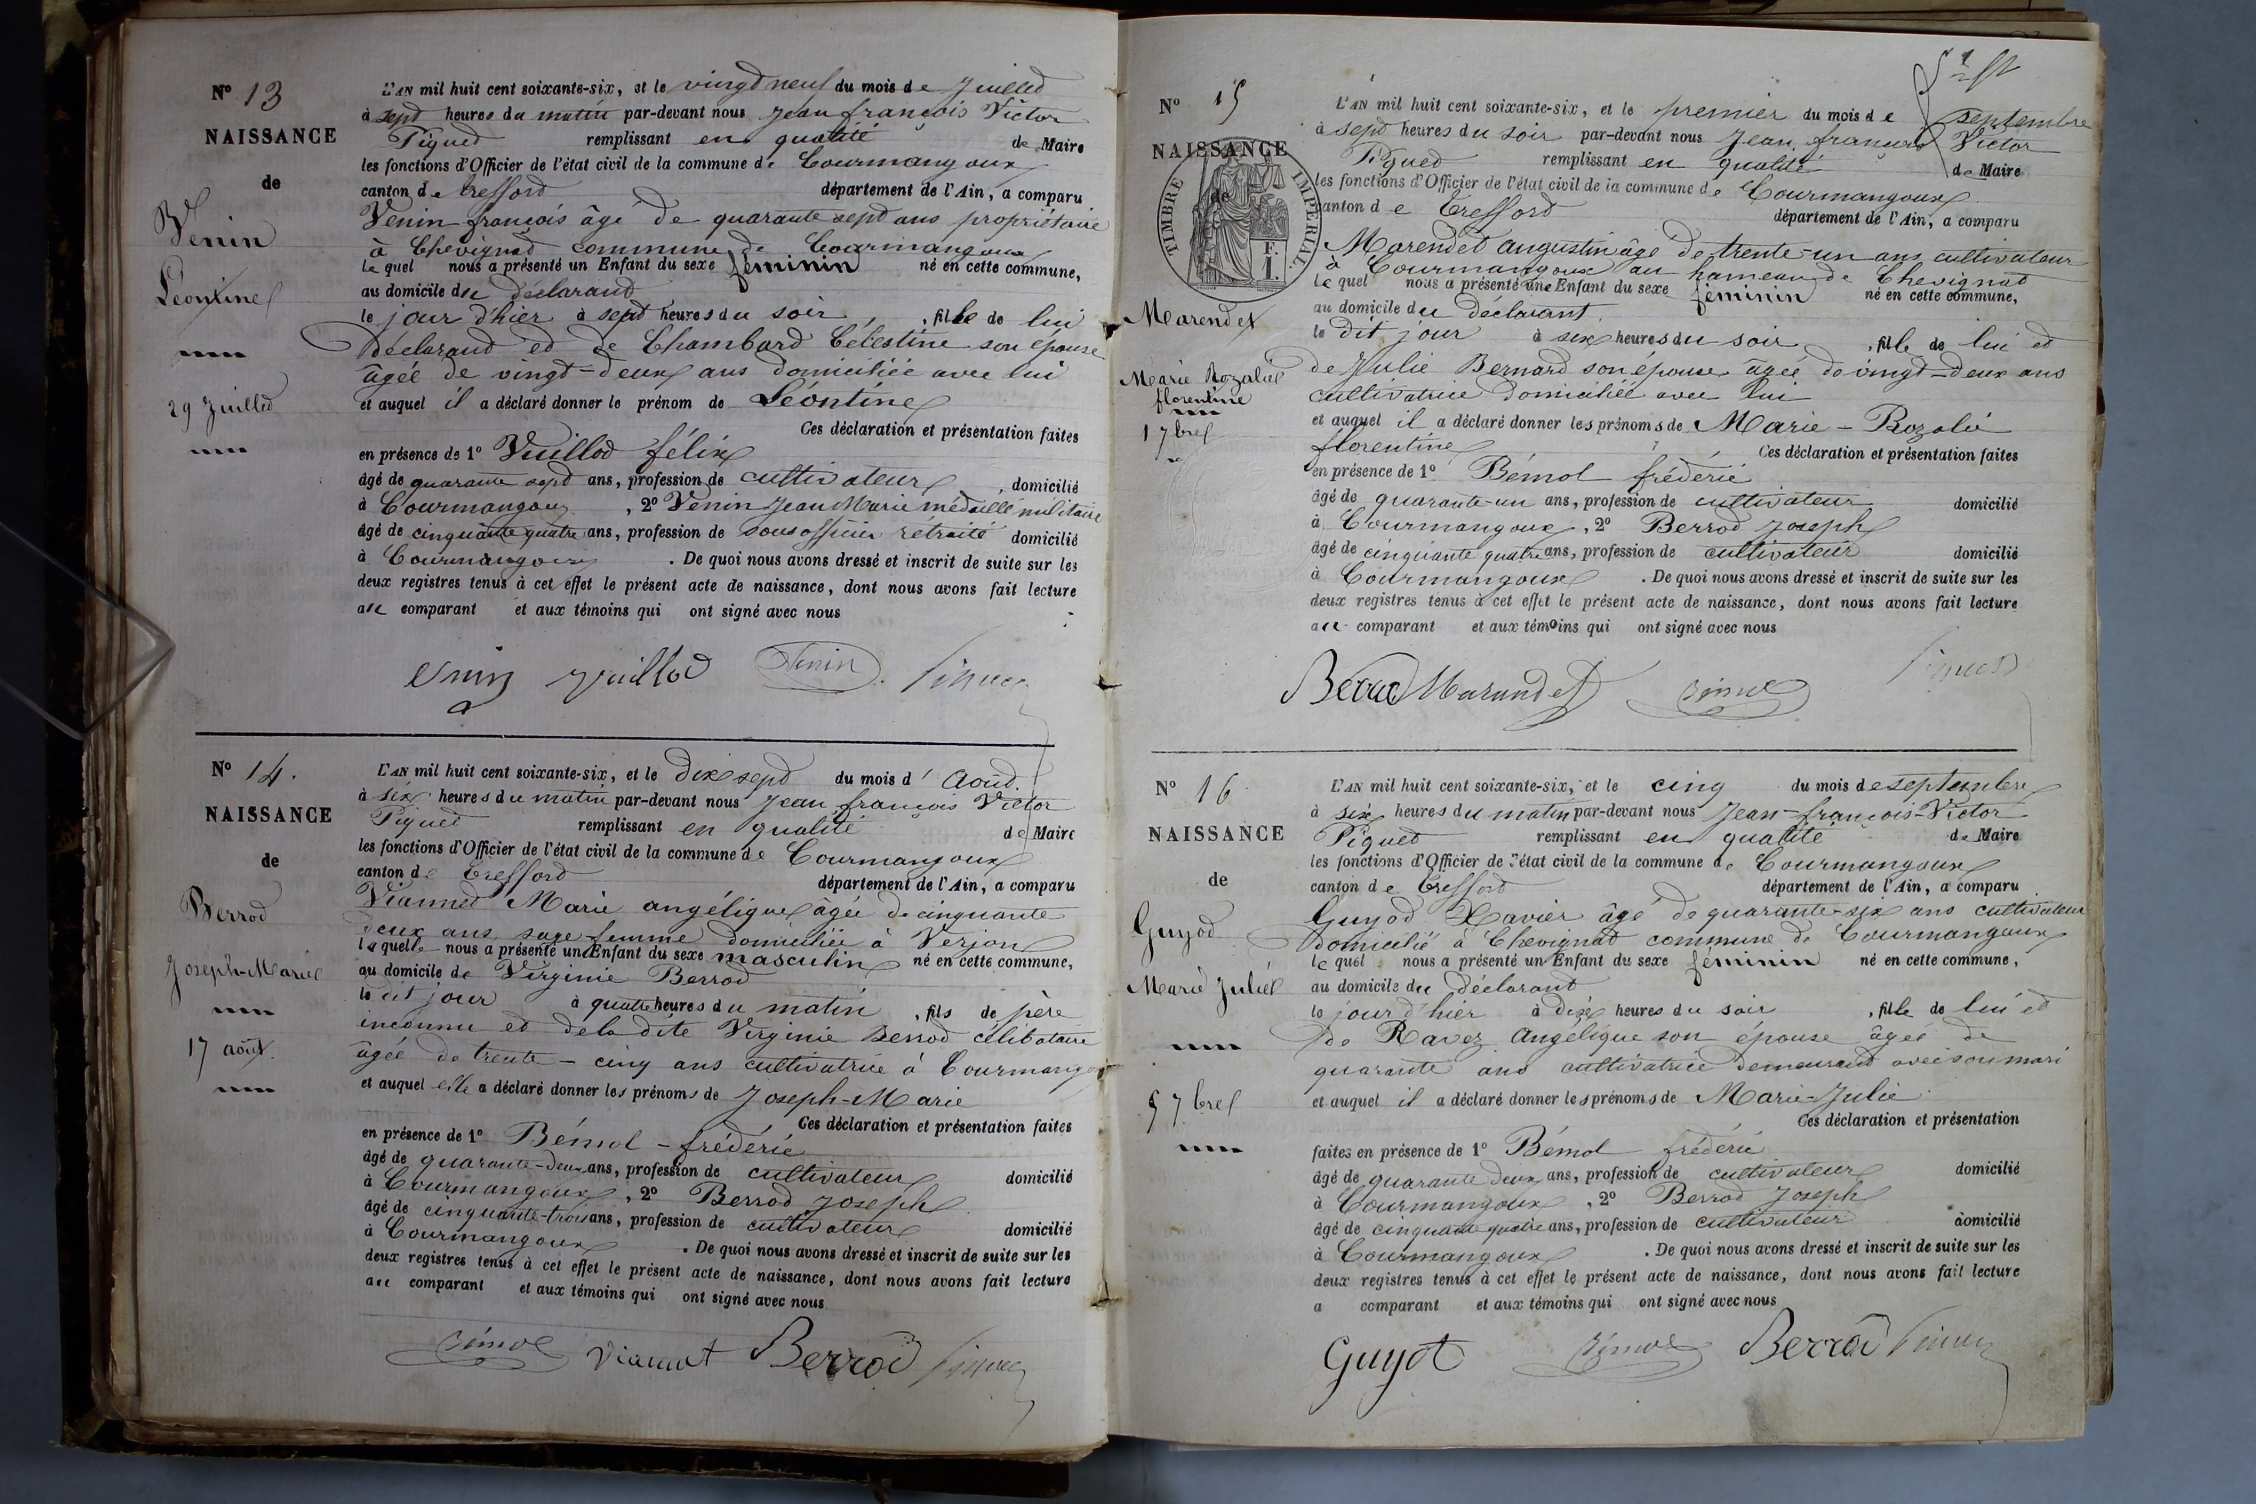 N° 13
NAISSANCE
de
Venin
Léontine
29 Juillet
L'AN mil huit cent soixante-six, et le vingt neuf du mois de Juillet
à sept heures du matin par-devant nous Jean françois Victor
Piquet remplissant en qualité de Maire
les fonctions d'Officier de l'état civil de la commune de Courmangoux
canton de Treffort département de l'Ain, a comparu
Venin françois âgé de quarante sept ans propriétaire
à Chevignat commune de Courmangoux
lequel nous a présenté un Enfant du sexe féminin né en cette commune,
au domicile du déclarand
le jour d'hier à sept heures du soir, fille de lui
déclarand et de Chambard Célestine son épouse
âgée de vingt-deux ans domiciliée avec lui
et auquel il a déclaré donner le prénom de Léontine
Ces déclaration et présentation faites
en présence de 1° Vuillod félix
âgé de quarante sept ans, profession de cultivateur, domicilié
à Courmangoux, 2° Venin Jean Marie médaillé militaire
âgé de cinquante quatre ans, profession de sous officier retraité domicilié
à Courmangoux. De quoi nous avons dressé et inscrit de suite sur les
deux registres tenus à cet effet le présent acte de naissance, dont nous avons fait lecture
au comparant et aux témoins qui ont signé avec nous
Venin Vuillod Venin Piquet
N° 14.
NAISSANCE
de
Berrod
Joseph-Marie
17 août.
L'AN mil huit cent soixante-six, et le dix sept du mois d'Août.
à six heures du matin par-devant nous Jean françois Victor
Piquet remplissant en qualité de Maire
les fonctions d'Officier de l'état civil de la commune de Courmangoux
canton de Treffort département de l'Ain, a comparu
Vianned Marie angélique âgée de cinquante
deux ans sage femme domiciliée à Verjon
laquelle nous a présenté un Enfant du sexe masculin né en cette commune,
au domicile de Virginie Berrod
le dit jour à quatre heures du matin, fils de père
inconnu et de la dite Virginie Berrod célibataire
âgée de trente-cinq ans cultivatrice à Courmangoux
et auquel elle a déclaré donner les prénoms de Joseph-Marie
Ces déclaration et présentation faites
en présence de 1° Bémol-frédéric
âgé de quarante-deux ans, profession de cultivateur domicilié
à Courmangoux, 2° Berrod Joseph
âgé de cinquante-trois ans, profession de cultivateur domicilié
à Courmangoux. De quoi nous avons dressé et inscrit de suite sur les
deux registres tenus à cet effet le présent acte de naissance, dont nous avons fait lecture
au comparant et aux témoins qui ont signé avec nous
Bémol Viannet Berrod Piquet
N° 15
NAISSANCE
de
TIMBRE IMPERIAL.
F.
1.
Marendet
Marie Rozalie
florentine
1 7bre
L'AN mil huit cent soixante-six, et le premier du mois de septembre
à sept heures du soir par-devant nous Jean françois Victor
Piqued remplissant en qualité de Maire
les fonctions d'Officier de l'état civil de la commune de Courmangoux
canton de Treffort département de l'Ain, a comparu
Marendet augustin âgé de trente-un ans cultivateur
à Courmangoux au hameau de Chevignat
lequel nous a présenté une Enfant du sexe féminin né en cette commune,
au domicile du déclarant.
le dit jour à six heures du soir, fille de lui et
de Julie Bernard son épouse âgée de vingt-deux ans
cultivatrice domiciliée avec lui
et auquel il a déclaré donner les prénoms de Marie-Rozalie
florentine Ces déclaration et présentation faites
en présence de 1° Bémol frédéric
âgé de quarante-un ans, profession de cultivateur domicilié
à Courmangoux, 2° Berrod Joseph
âgé de cinquante quatre ans, profession de cultivateur domicilié
à Courmangoux. De quoi nous avons dressé et inscrit de suite sur les
deux registres tenus à cet effet le présent acte de naissance, dont nous avons fait lecture
au comparant et aux témoins qui ont signé avec nous
Berrod Marandet Bémol Piquet
N° 16
NAISSANCE
de
Guyod
Marie Julie
5 7bre
L'AN mil huit cent soixante-six, et le cinq du mois de septembre
à six heures du matin par-devant nous Jean-françois-Victor
Piqued remplissant en qualité de Maire
les fonctions d'Officier de l'état civil de la commune de Courmangoux
canton de Treffort département de l'Ain, a comparu
Guyod Xavier âgé de quarante-six ans cultivateur
domicilié à Chevignat commune de Courmangoux
lequel nous a présenté un Enfant du sexe féminin né en cette commune,
au domicile du déclarant
le jour d'hier à dix heures du soir, fille de lui et
de Ravez Angélique son épouse âgée de
quarante ans cultivatrice demeurand avec son mari
et auquel il a déclaré donner les prénoms de Marie-Julie
Ces déclaration et présentation
faites en présence de 1° Bémol frédéric
âgé de quarante deux ans, profession de cultivateur domicilié
à Courmangoux, 2° Berrod Joseph
âgé de cinquante quatre ans, profession de cultivateur domicilié
à Courmangoux. De quoi nous avons dressé et inscrit de suite sur les
deux registres tenus à cet effet le présent acte de naissance, dont nous avons fait lecture
a comparant et aux témoins qui ont signé avec nous
Guyot Bémol Berrod Piquet